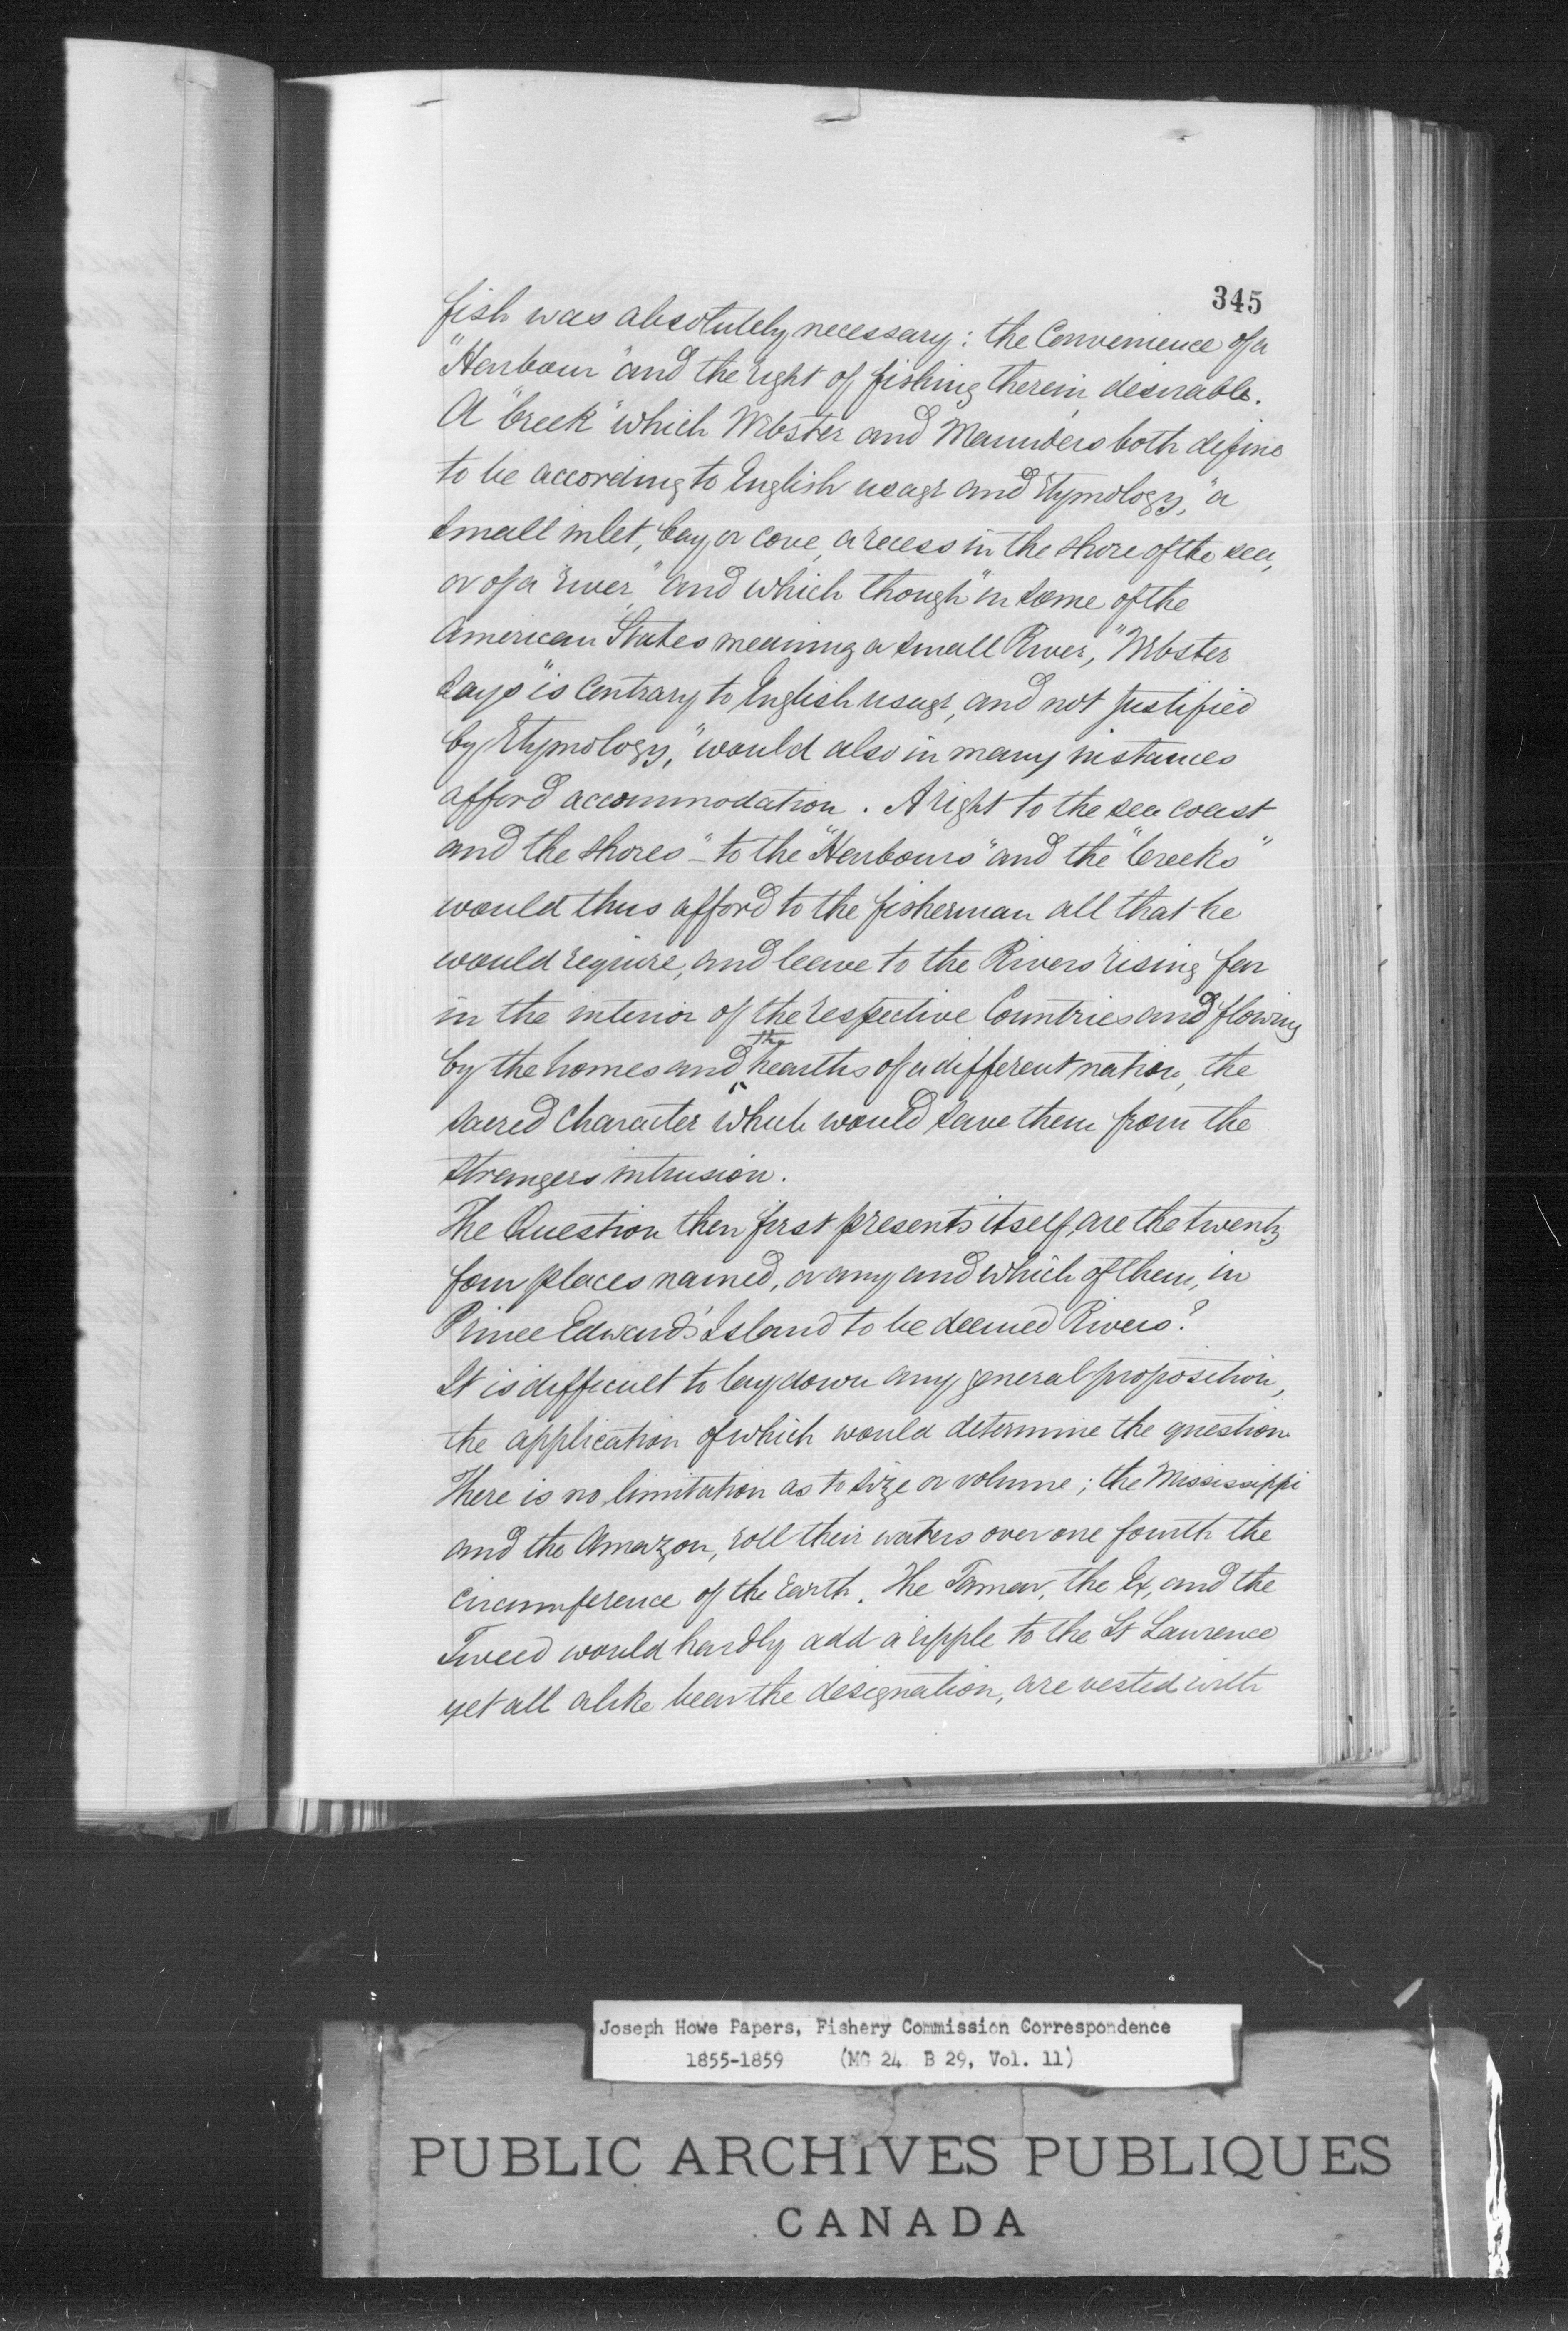 345
fish was absolutely necessary: the Convenience of a
"Harbour" and the right of fishing therein desirable.
A "Creek" which Webster and Maunders both define
to be according to English usage and Etymology, "a
small inlet, bay or cove, a recess in the shore of the sea,
or of a river," and which though "in some of the
American States meaning a small River," Webster
says "is Contrary to English usage, and not justified
by Etymology," would also in many instances
afford accommodation. A right to the "sea coast
and the shores" - to the "Harbours" and the "Creeks"
would thus afford to the fisherman all that he
would require, and leave to the Rivers rising far
in the interior of the respective Countries and flowing
by the homes and the hearths of a different nation, the
sacred Character which would save them from the
strangers intrusion.
The Question then first presents itself, are the twenty
four places named, or any and which of them, in
Prince Edward's Island to be deemed Rivers?
It is difficult to lay down any general proposition,
the application of which would determine the question
There is no limitation as to size or volume; the Mississippi
and the Amazon, roll their waters over one fourth the
circumference of the Earth. The Tamar, the Ex, and the
Tweed would hardly add a ripple to the St Lawrence
yet all alike bear the designation, are vested with
Joseph Howe Papers, Fishery Commission Correspondence
1855-1859 (MG 24 B 29, Vol. 11)
PUBLIC ARCHIVES PUBLIQUES
CANADA